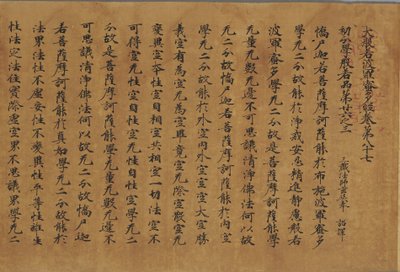 大般若波羅蜜多經卷第八十七
三藏法師玄奘奉　詔譯
初分學般若品第廿六之三
憍尸迦若菩薩摩訶薩能於布施波羅蜜多
學无二分故能於淨戒安忍精進靜慮般若
波羅蜜多學无二分故是菩薩摩訶薩能學
无量无數无邊不可思議清淨佛法何以故
无二分故憍尸迦若菩薩摩訶薩能於內空
學无二分故能於外空內外空空空大空勝
義空有為空无為空畢竟空无際空散空无
變異空本性空自相空共相空一切法空不
可得空无性空自性空无性自性空學无二
分故是菩薩摩訶薩能學无量无數无邊不
可思議清淨佛法何以故无二分故憍尸迦
若菩薩摩訶薩能於真如學无二分故能於
法界法性不虛妄性不變異性平等性離生
性法定法住實際虛空界不思議界學无二